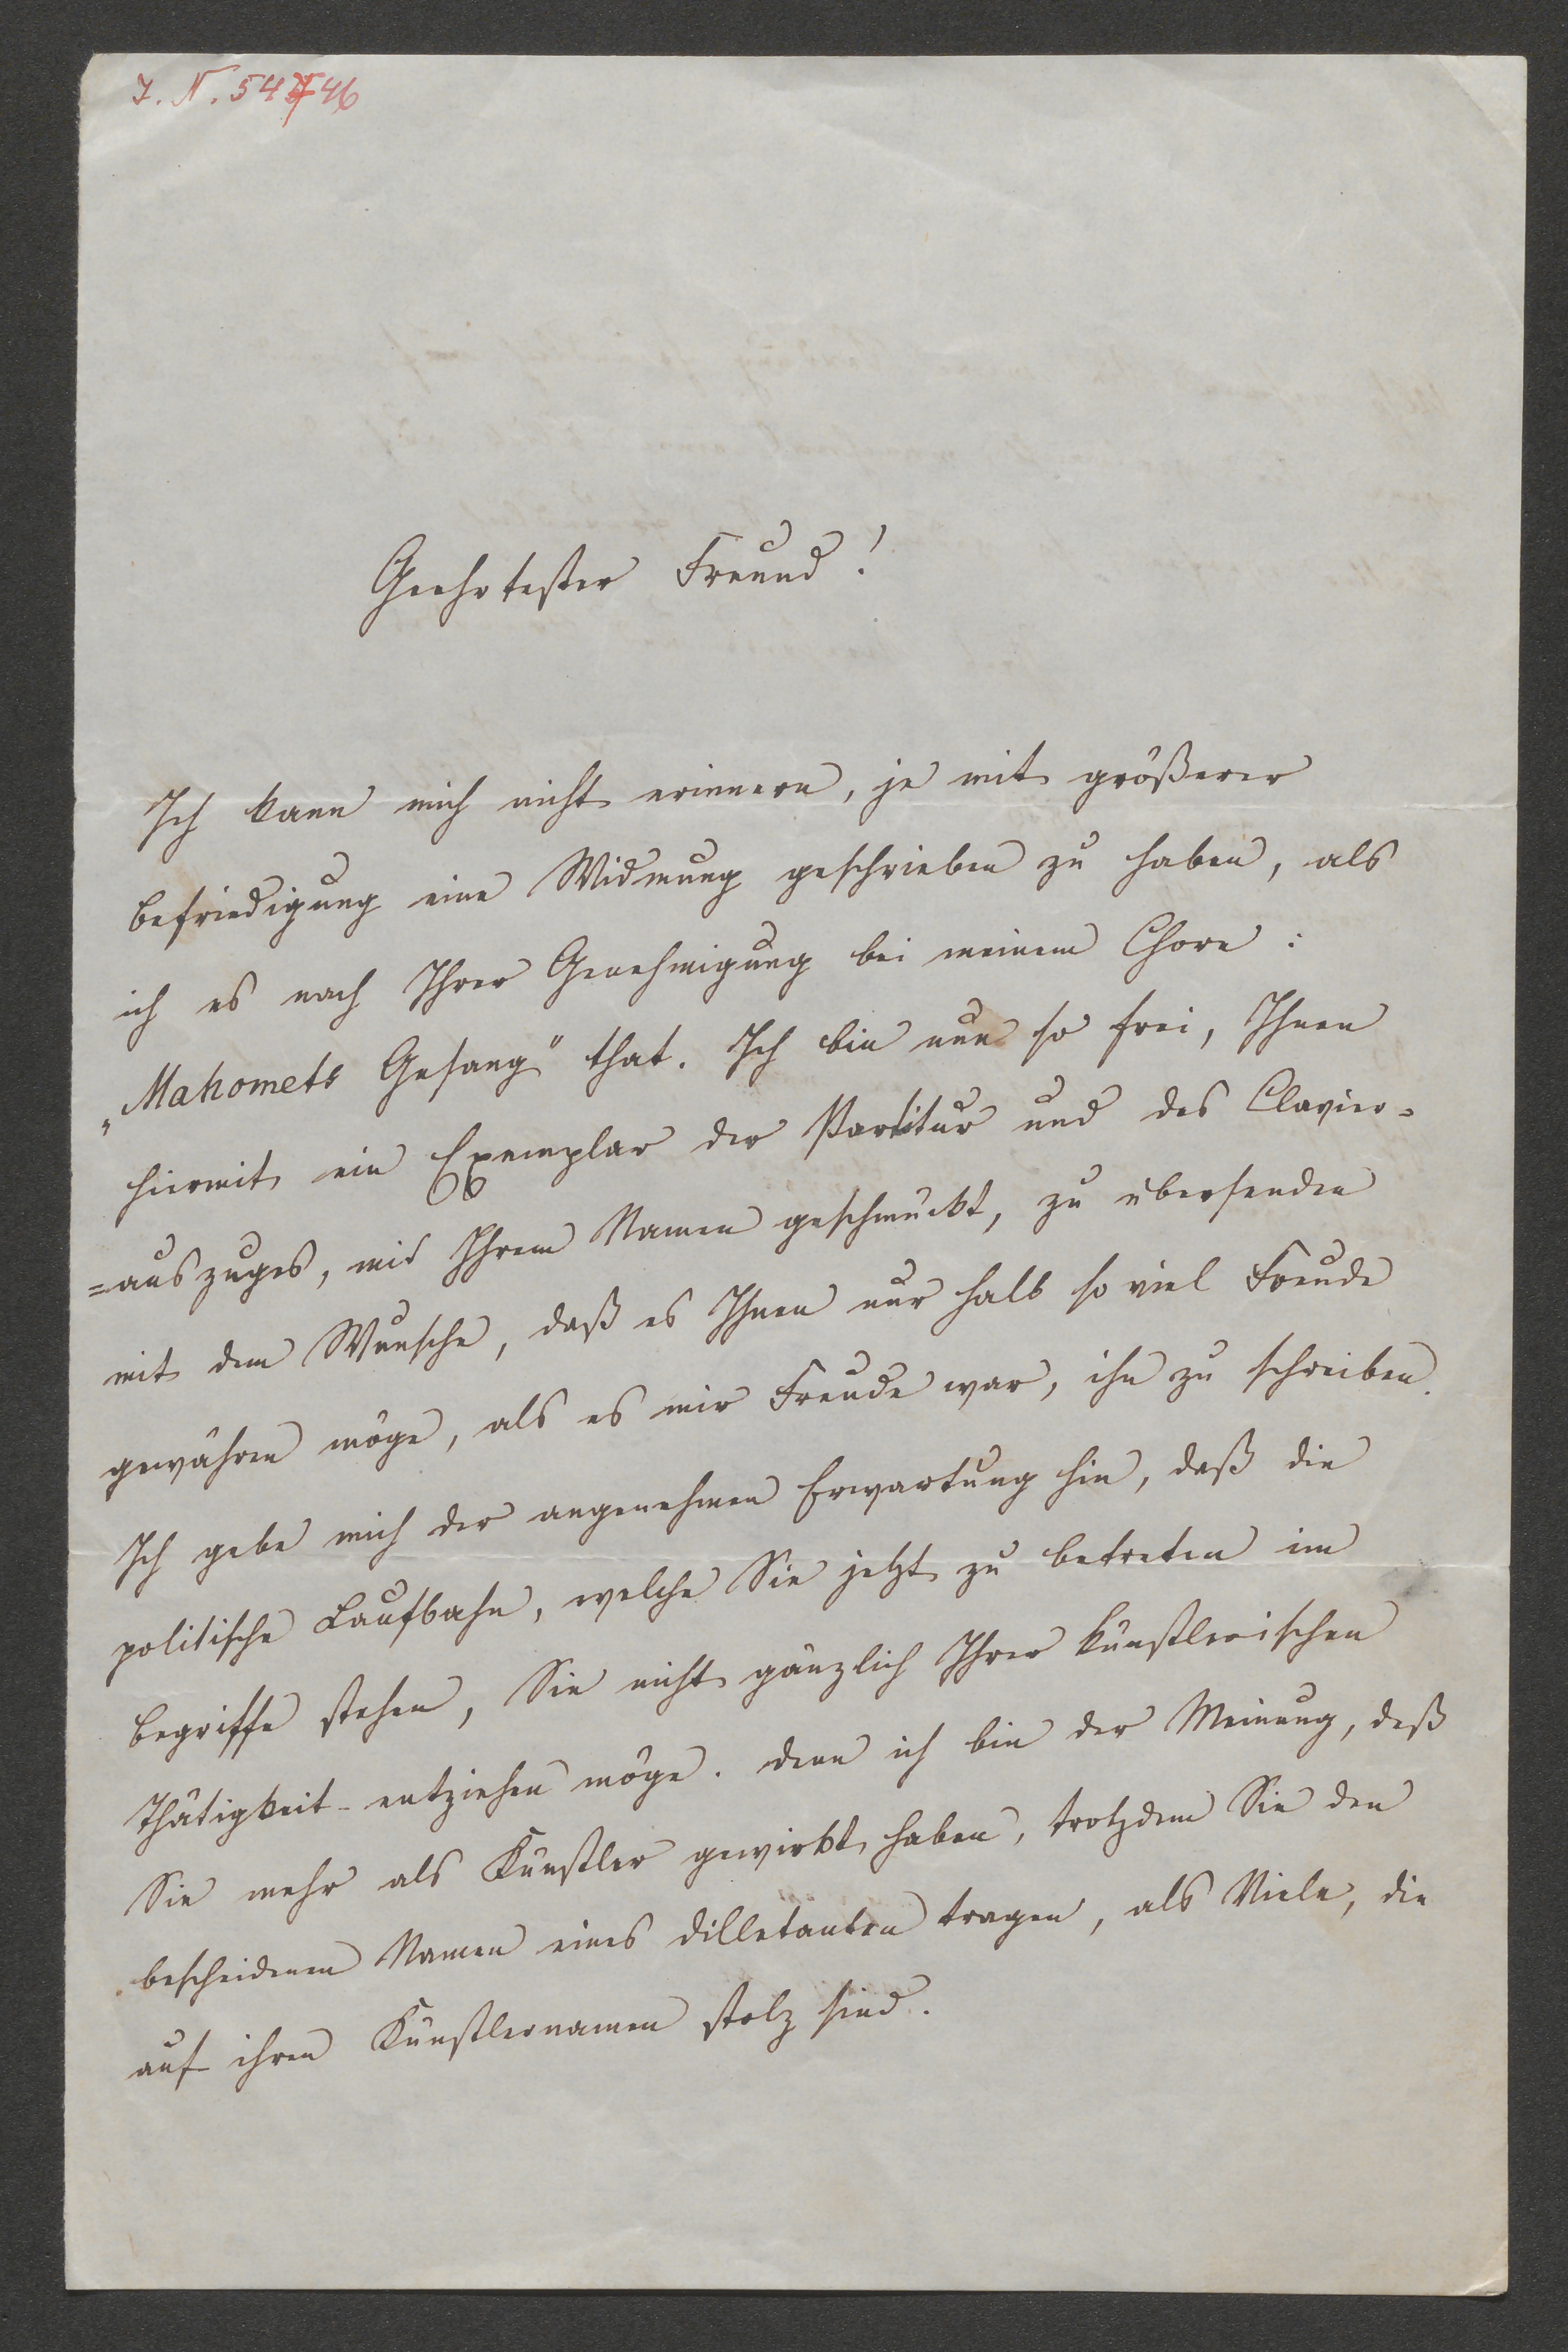 I. N. 54746
Geehrtester Freund!
Ich kann mich nicht erinnern, je mit größerer
Befriedigung eine Widmung geschrieben zu haben, als
ich es nach Ihrer Genehmigung bei meinem Chore:
„Mahomets Gesang" that. Ich bin nun so frei, Ihnen
hiermit ein Exemplar der Partitur und des Clavier=
=auszuges, mit Ihrem Namen geschmückt, zu übersenden
mit dem Wunsche, daß es Ihnen nur halb so viel Freude
gewähren möge, als es mir Freude war, ihn zu schreiben.
Ich gebe mich der angenehmen Erwartung hin, daß die
politische Laufbahn, welche Sie jetzt zu betreten im
Begriffe stehen, Sie nicht gänzlich Ihrer künstlerischen
Thätigkeit entziehen möge. Denn ich bin der Meinung, daß
Sie mehr als Künstler gewirkt haben, trotzdem Sie den
bescheidenen Namen eines Dilletanten tragen, als Viele, die
auf ihren Künstlernamen stolz sind.